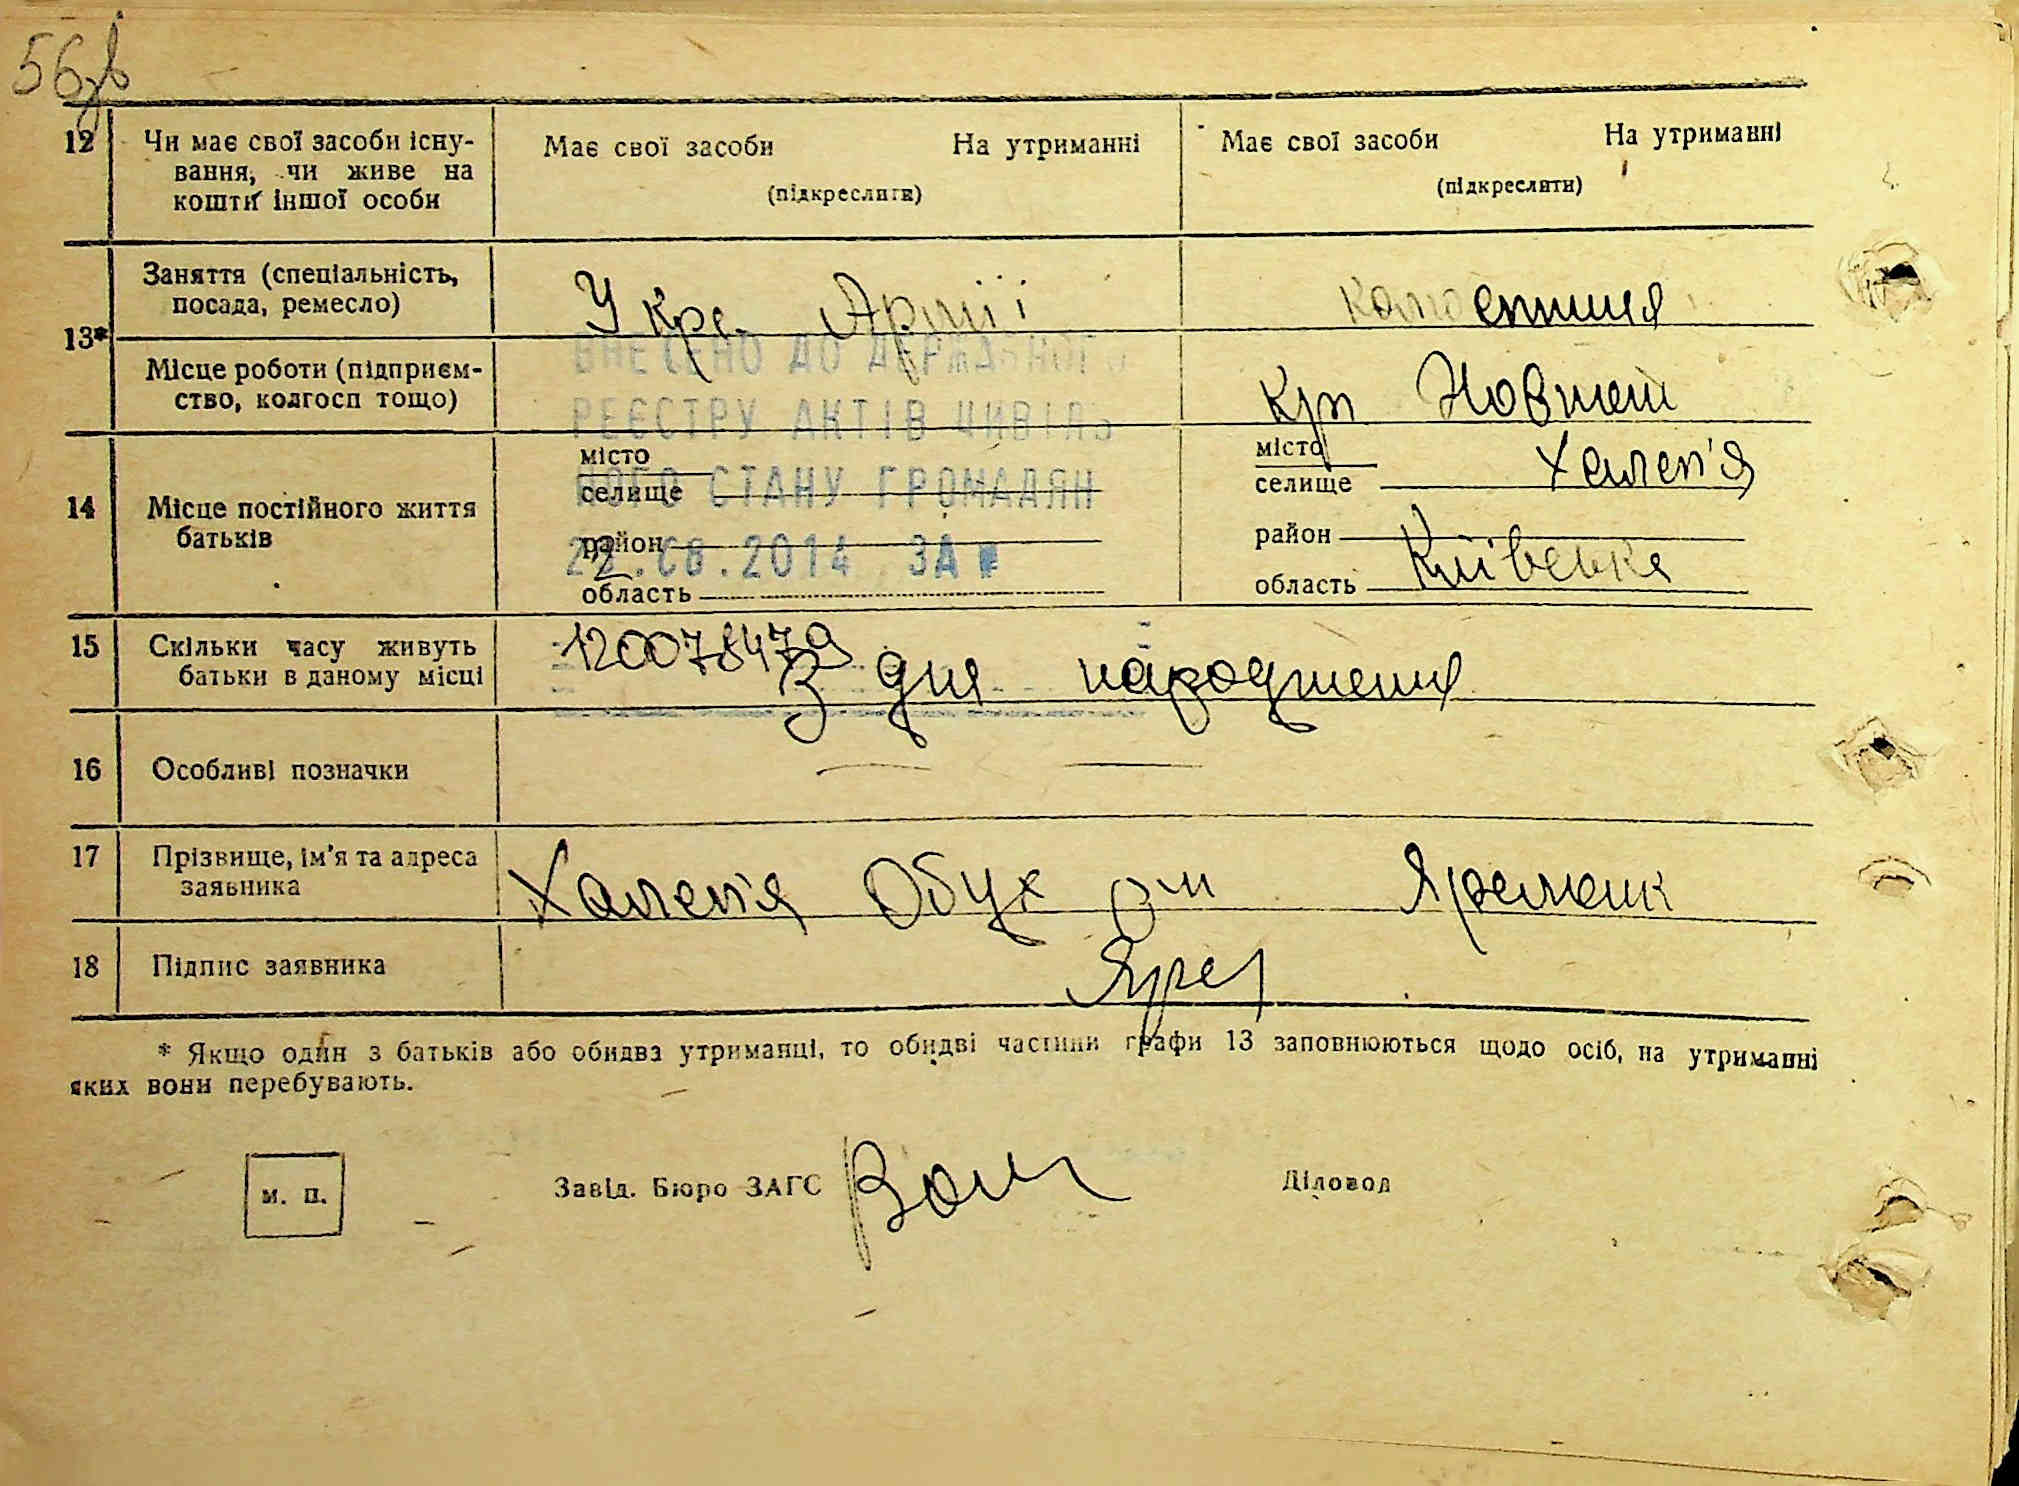 56зв
12 Чи має свої засоби існу- Має свої засоби На утриманні Має свої засоби На утриманні
вання, чи живе на (підкреслити) (підкреслити)
кошти іншої особи
13* Заняття (спеціальність, У кра. Армії
посада, ремесло)
ВНЕСЕНО ДО ДЕРЖАВНОГО
Місце роботи (підприєм-
ство, колгосп тощо)
РЕЄСТРУ АКТІВ ЦИВІЛЬ
14 Місце постійного життя місто місто Халеп'я
батьків селище селище
НОГО СТАНУ ГРОМАДЯН
район район
22.08.2014 ЗА №
область область Київська
15 Скільки часу живуть 120078479
батьки в даному місці З дня народження
16 Особливі позначки
17 Прізвище, ім'я та адреса Халеп'я Обух
заявника
18 Підпис заявника Яре
* Якщо один з батьків або обидва утриманці, то обидві частини графи 13 заповнюються щодо осіб, на утриманні
яких вони перебувають.
м. п. Завід. Бюро ЗАГС Діловод